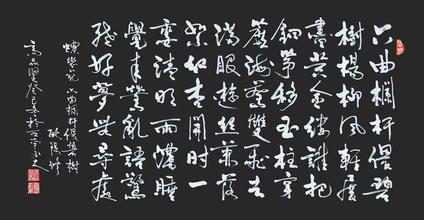 六曲欄杆偎碧
樹楊柳風輕展
盡黃金縷誰把
鈿箏移玉柱穿
簾海燕雙飛去
滿眼遊絲兼落
絮紅杏開時一
霎清明雨濃睡
覺來鶯亂語驚
殘好夢無尋處
蝶戀花 六曲欄杆偎碧樹
歐陽修